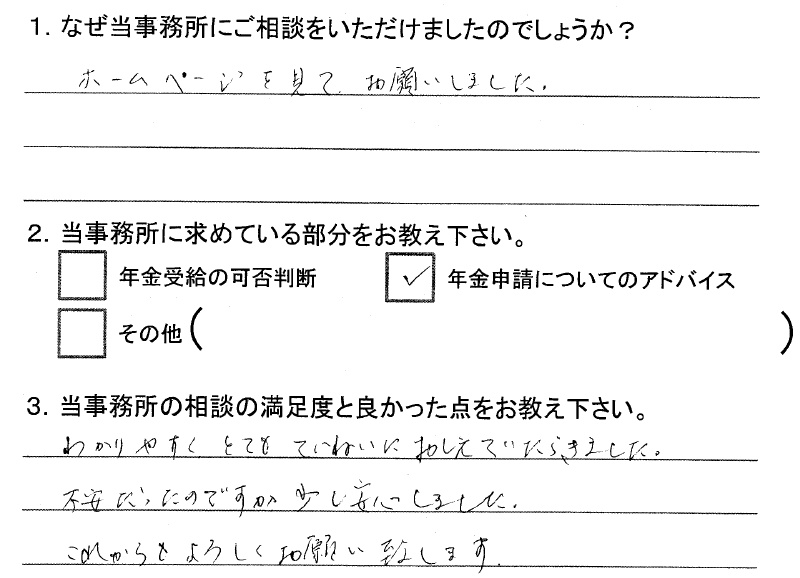 1. なぜ当事務所にご相談をいただけましたのでしょうか？
ホームページを見て、お願いしました。
2. 当事務所に求めている部分をお教え下さい。
年金受給の可否判断 ✓ 年金申請についてのアドバイス
その他( )
3. 当事務所の相談の満足度と良かった点をお教え下さい。
わかりやすくとてもていねいにおしえていただきました。
不安だったのですが少し安心しました。
これからもよろしくお願い致します。